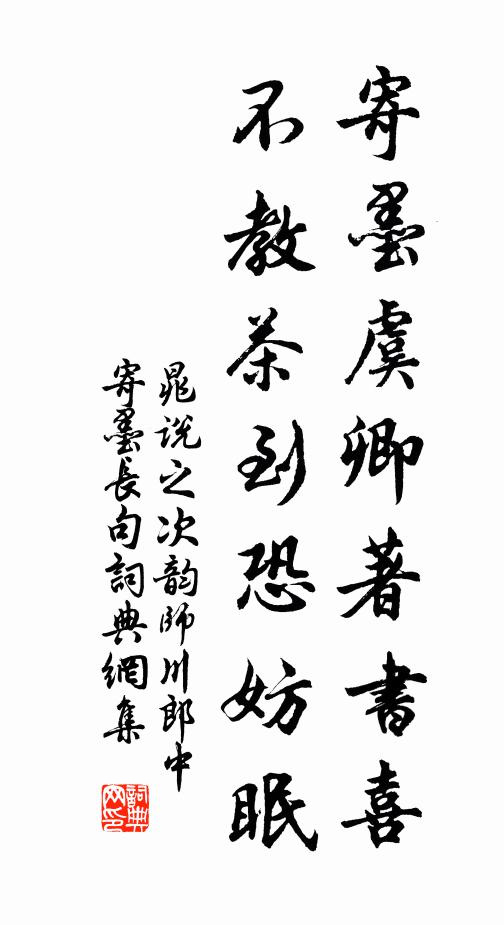 寄墨虞卿著書喜
不教茶到恐妨眠
晁說之次韵師川郎中
寄墨長句詞典網集
詞典网印